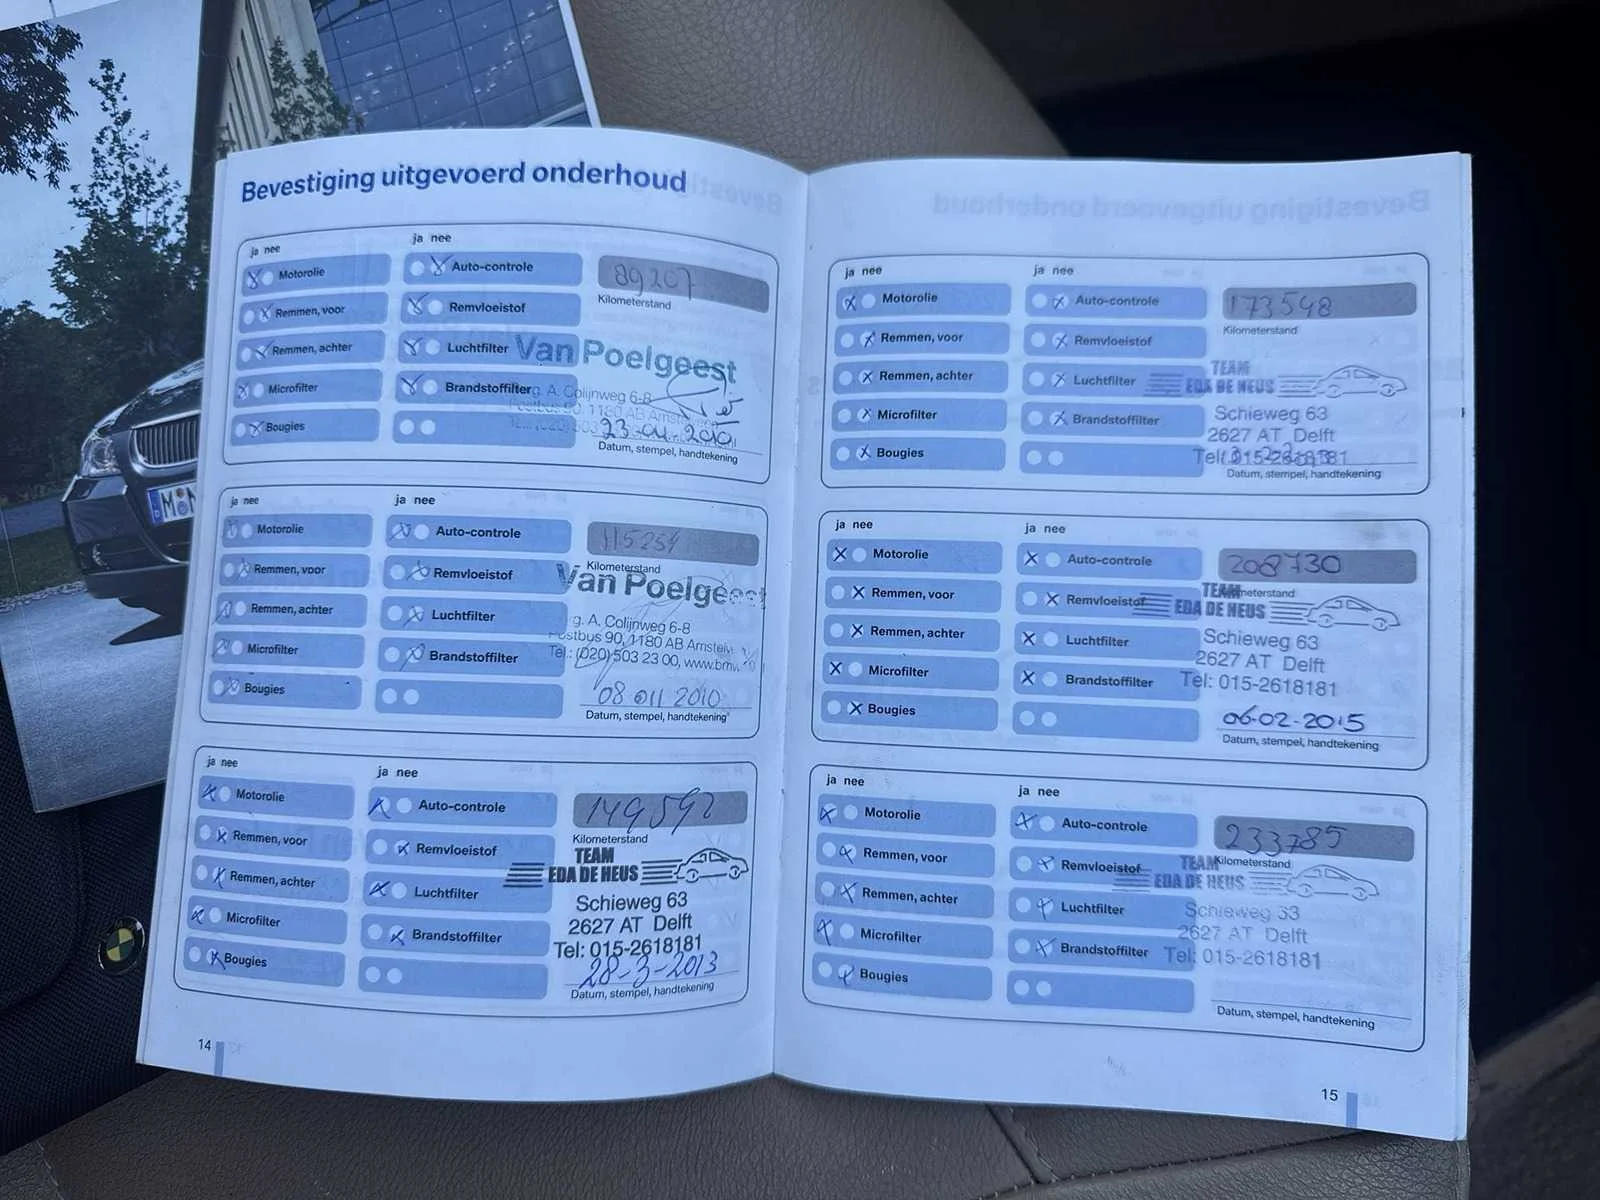 Bevestiging uitgevoerd onderhoud
ja nee
ja nee
Motorolie
Auto-controle
89207
Kilometerstand
Remmen, voor
Remvloeistof
Remmen, achter
Luchtfilter
Van Poelgeest
Microfilter
Brandstoffilter
rg. A. Colijnweg 6-8
Postbus 90, 1180 AB Amstel
Bougies
23-04-2010
Datum, stempel, handtekening
ja nee
ja nee
Motorolie
Auto-controle
115254
Kilometerstand
Remmen, voor
Remvloeistof
Van Poelgeest
Remmen, achter
Luchtfilter
rg. A. Colijnweg 6-8
Postbus 90, 1180 AB Amstelv
Microfilter
Brandstoffilter
Tel.: (020) 503 23 00, www.bmw
Bougies
08 011 2010
Datum, stempel, handtekening
ja nee
ja nee
Motorolie
Auto-controle
149592
Kilometerstand
Remmen, voor
Remvloeistof
TEAM
EDA DE HEUS
Remmen, achter
Luchtfilter
Schieweg 63
2627 AT Delft
Microfilter
Brandstoffilter
Tel: 015-2618181
Bougies
28-3-2013
Datum, stempel, handtekening
14
ja nee
ja nee
Motorolie
Auto-controle
173548
Kilometerstand
Remmen, voor
Remvloeistof
TEAM
EDA DE HEUS
Remmen, achter
Luchtfilter
Schieweg 63
Microfilter
Brandstoffilter
2627 AT Delft
Bougies
Tel: 015-2618181
Datum, stempel, handtekening
ja nee
ja nee
Motorolie
Auto-controle
208730
Kilometerstand
Remmen, voor
Remvloeistof
TEAM
EDA DE HEUS
Remmen, achter
Luchtfilter
Schieweg 63
2627 AT Delft
Microfilter
Brandstoffilter
Tel: 015-2618181
Bougies
06-02-2015
Datum, stempel, handtekening
ja nee
ja nee
Motorolie
Auto-controle
233785
Kilometerstand
Remmen, voor
Remvloeistof
TEAM
EDA DE HEUS
Remmen, achter
Luchtfilter
Schieweg 63
2627 AT Delft
Microfilter
Brandstoffilter
Tel: 015-2618181
Bougies
Datum, stempel, handtekening
15